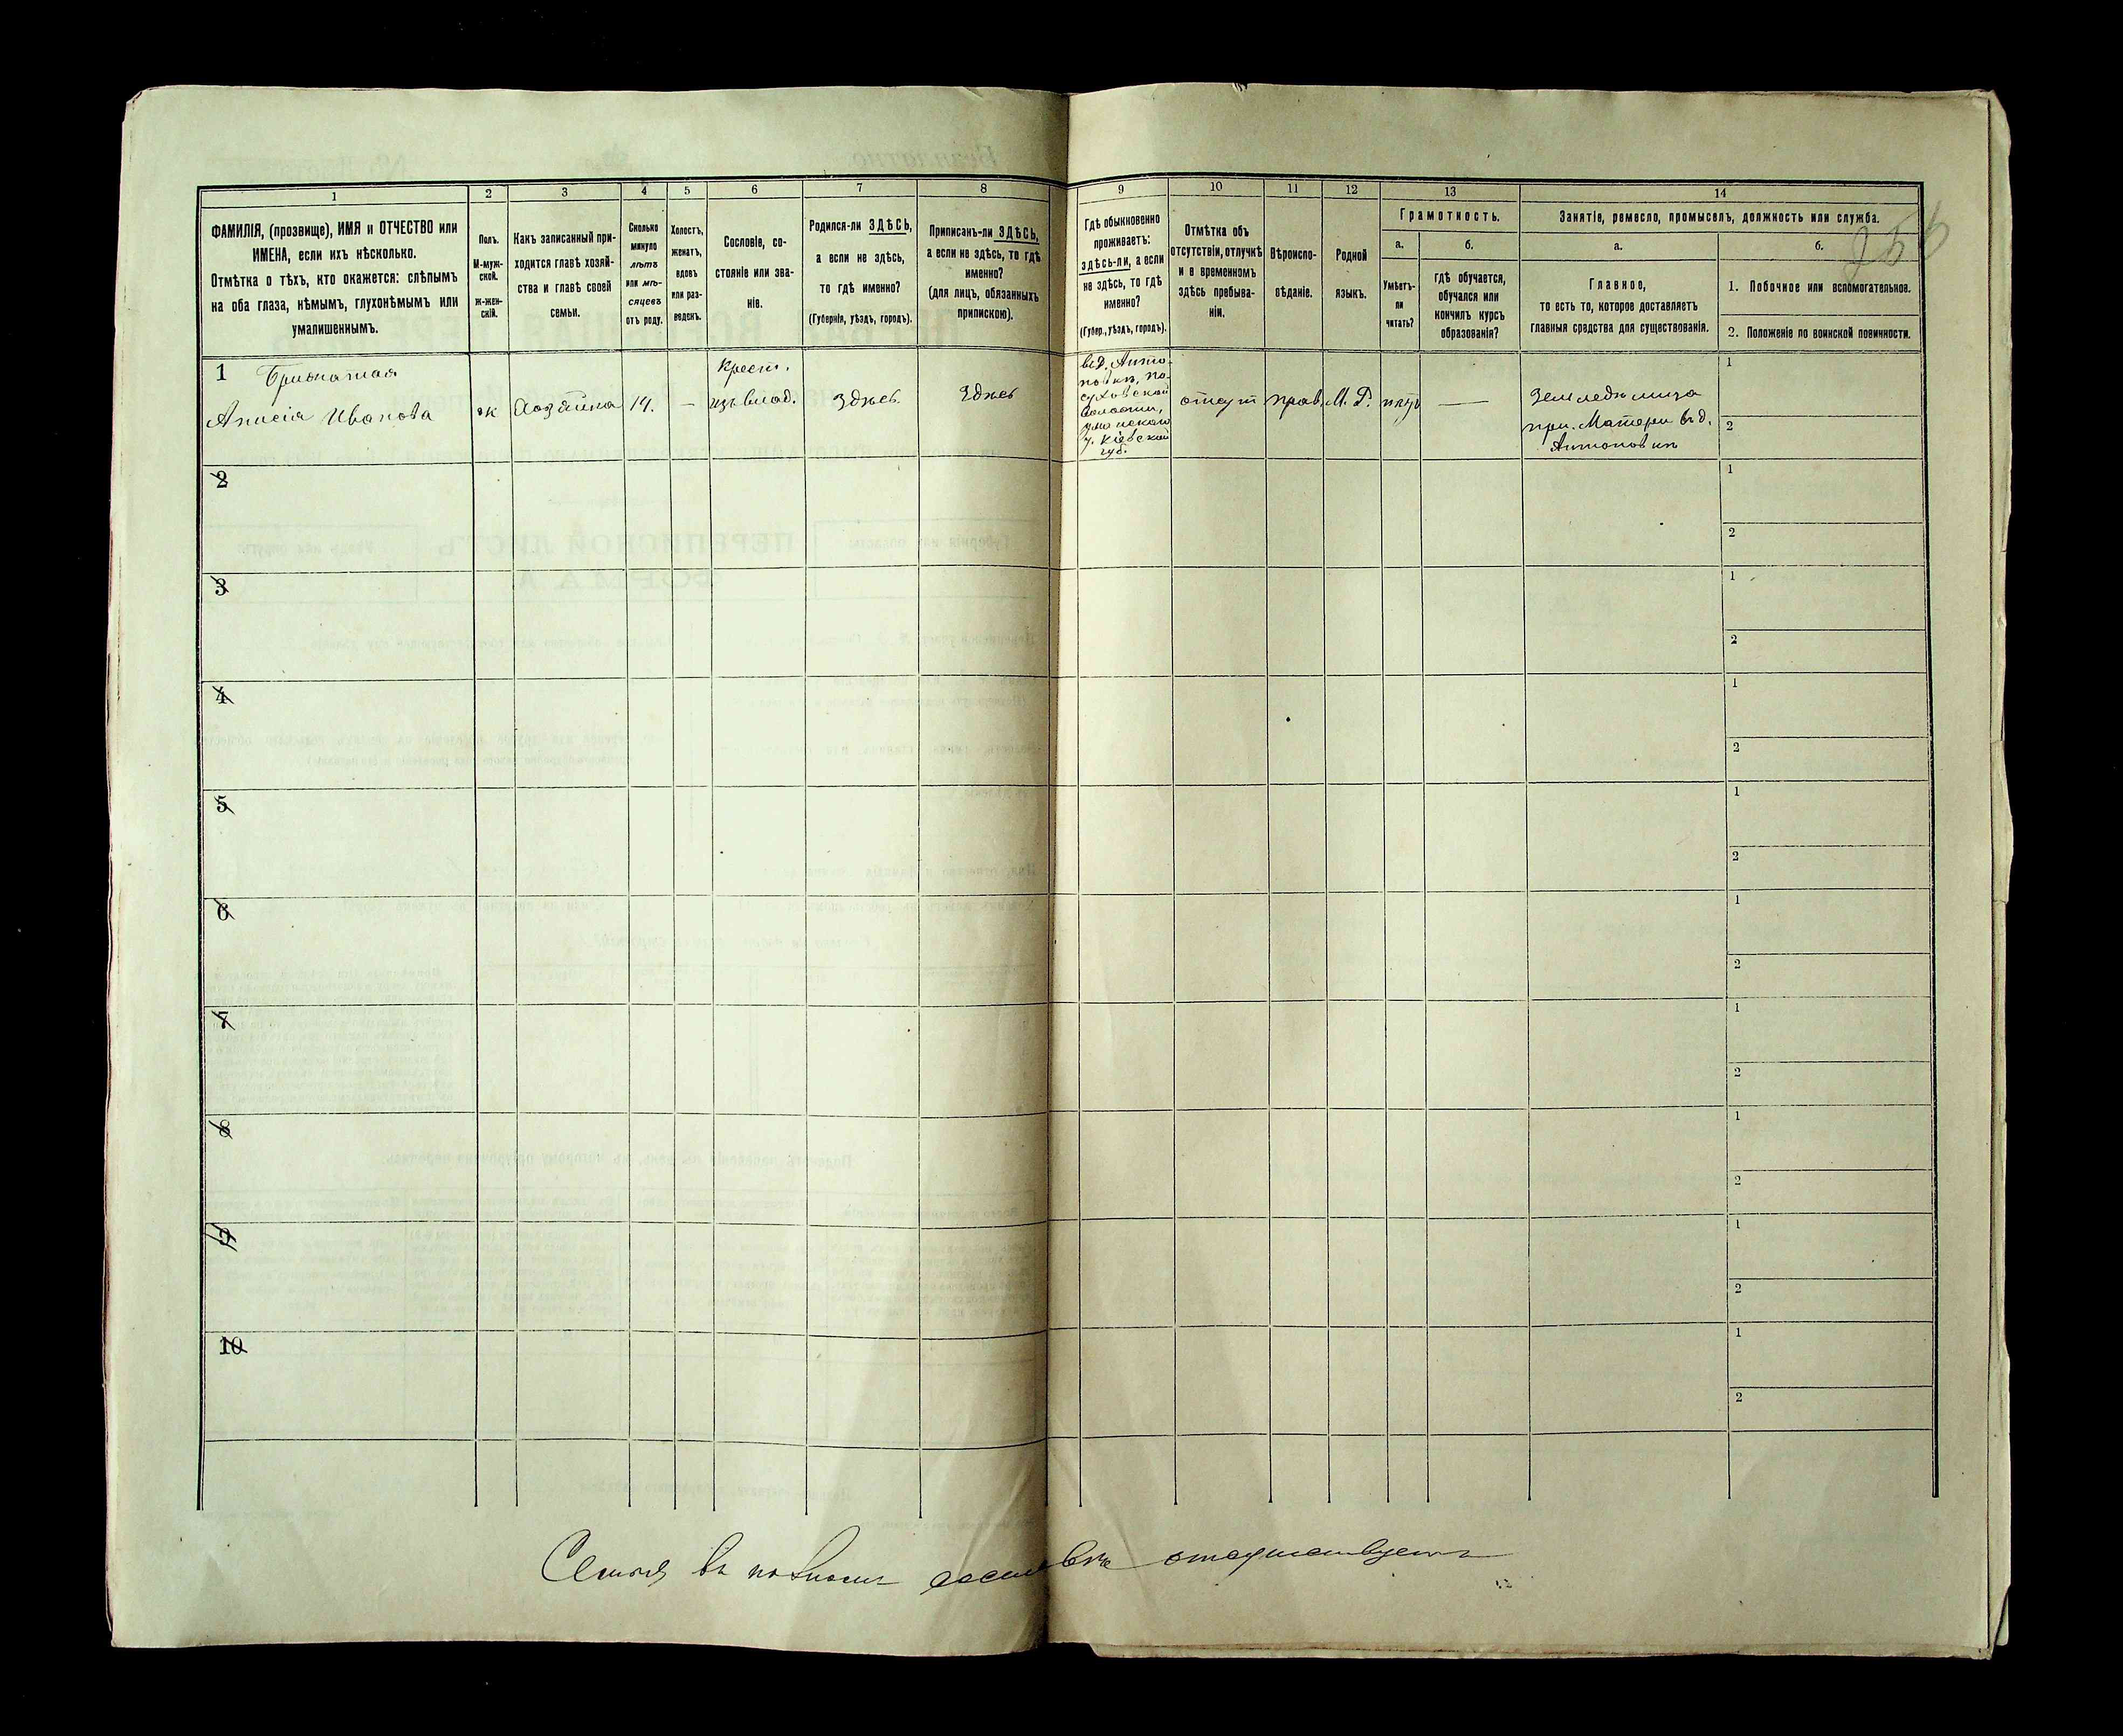 1
2
3
4
5
6
7
8
9
10
11
12
13
14
ФАМИЛІЯ, (прозвище), ИМЯ и ОТЧЕСТВО или
ИМЕНА, если ихъ нѣсколько.
Отмѣтка о тѣхъ, кто окажется: слѣпымъ
на оба глаза, нѣмымъ, глухонѣмымъ или
умалишеннымъ.
Полъ.
М-муж-
ской.
Ж-жен-
скій.
Какъ записанный при-
ходится главѣ хозяй-
ства и главѣ своей
семьи.
Сколько
минуло
лѣтъ
или мѣ-
сяцевъ
отъ роду.
Холостъ,
женатъ,
вдовъ
или раз-
веденъ.
Сословіе, со-
стояніе или зва-
ніе.
Родился-ли ЗДѢСЬ,
а если не здѣсь,
то гдѣ именно?
(Губернія, уѣздъ, городъ).
Приписанъ-ли ЗДѢСЬ,
а если не здѣсь, то гдѣ
именно?
(для лицъ, обязанныхъ
припискою).
Гдѣ обыкновенно
проживаетъ:
здѣсь-ли, а если
не здѣсь, то гдѣ
именно?
(Губер., уѣздъ, городъ).
Отмѣтка объ
отсутствіи, отлучкѣ
и о временномъ
здѣсь пребыва-
ніи.
Вѣроиспо-
вѣданіе.
Родной
языкъ.
Грамотность.
а.
б.
Умѣетъ-
ли
читать?
гдѣ обучается,
обучался или
кончилъ курсъ
образованія?
Занятіе, ремесло, промыселъ, должность или служба.
а.
б.
Главное,
то есть то, которое доставляетъ
главныя средства для существованія.
1. Побочное или вспомогательное.
2. Положеніе по воинской повинности.
1
Анисія Иванова
ж
Хозяйка
14.
—
Крест.
изъ влад.
Здѣсь
Здѣсь
въ д. Анто-
новкѣ, По-
суховской
волости,
Уманскаго
у. Кіевской
губ.
отсут
прав.
М. Р.
нѣтъ
—
при Матери въ д.
Антоновкѣ
1
2
2
1
2
3
1
2
4
1
2
5
1
2
6
1
2
7
1
2
8
1
2
9
1
2
10
1
2
Семья въ полномъ составѣ отсутствуетъ